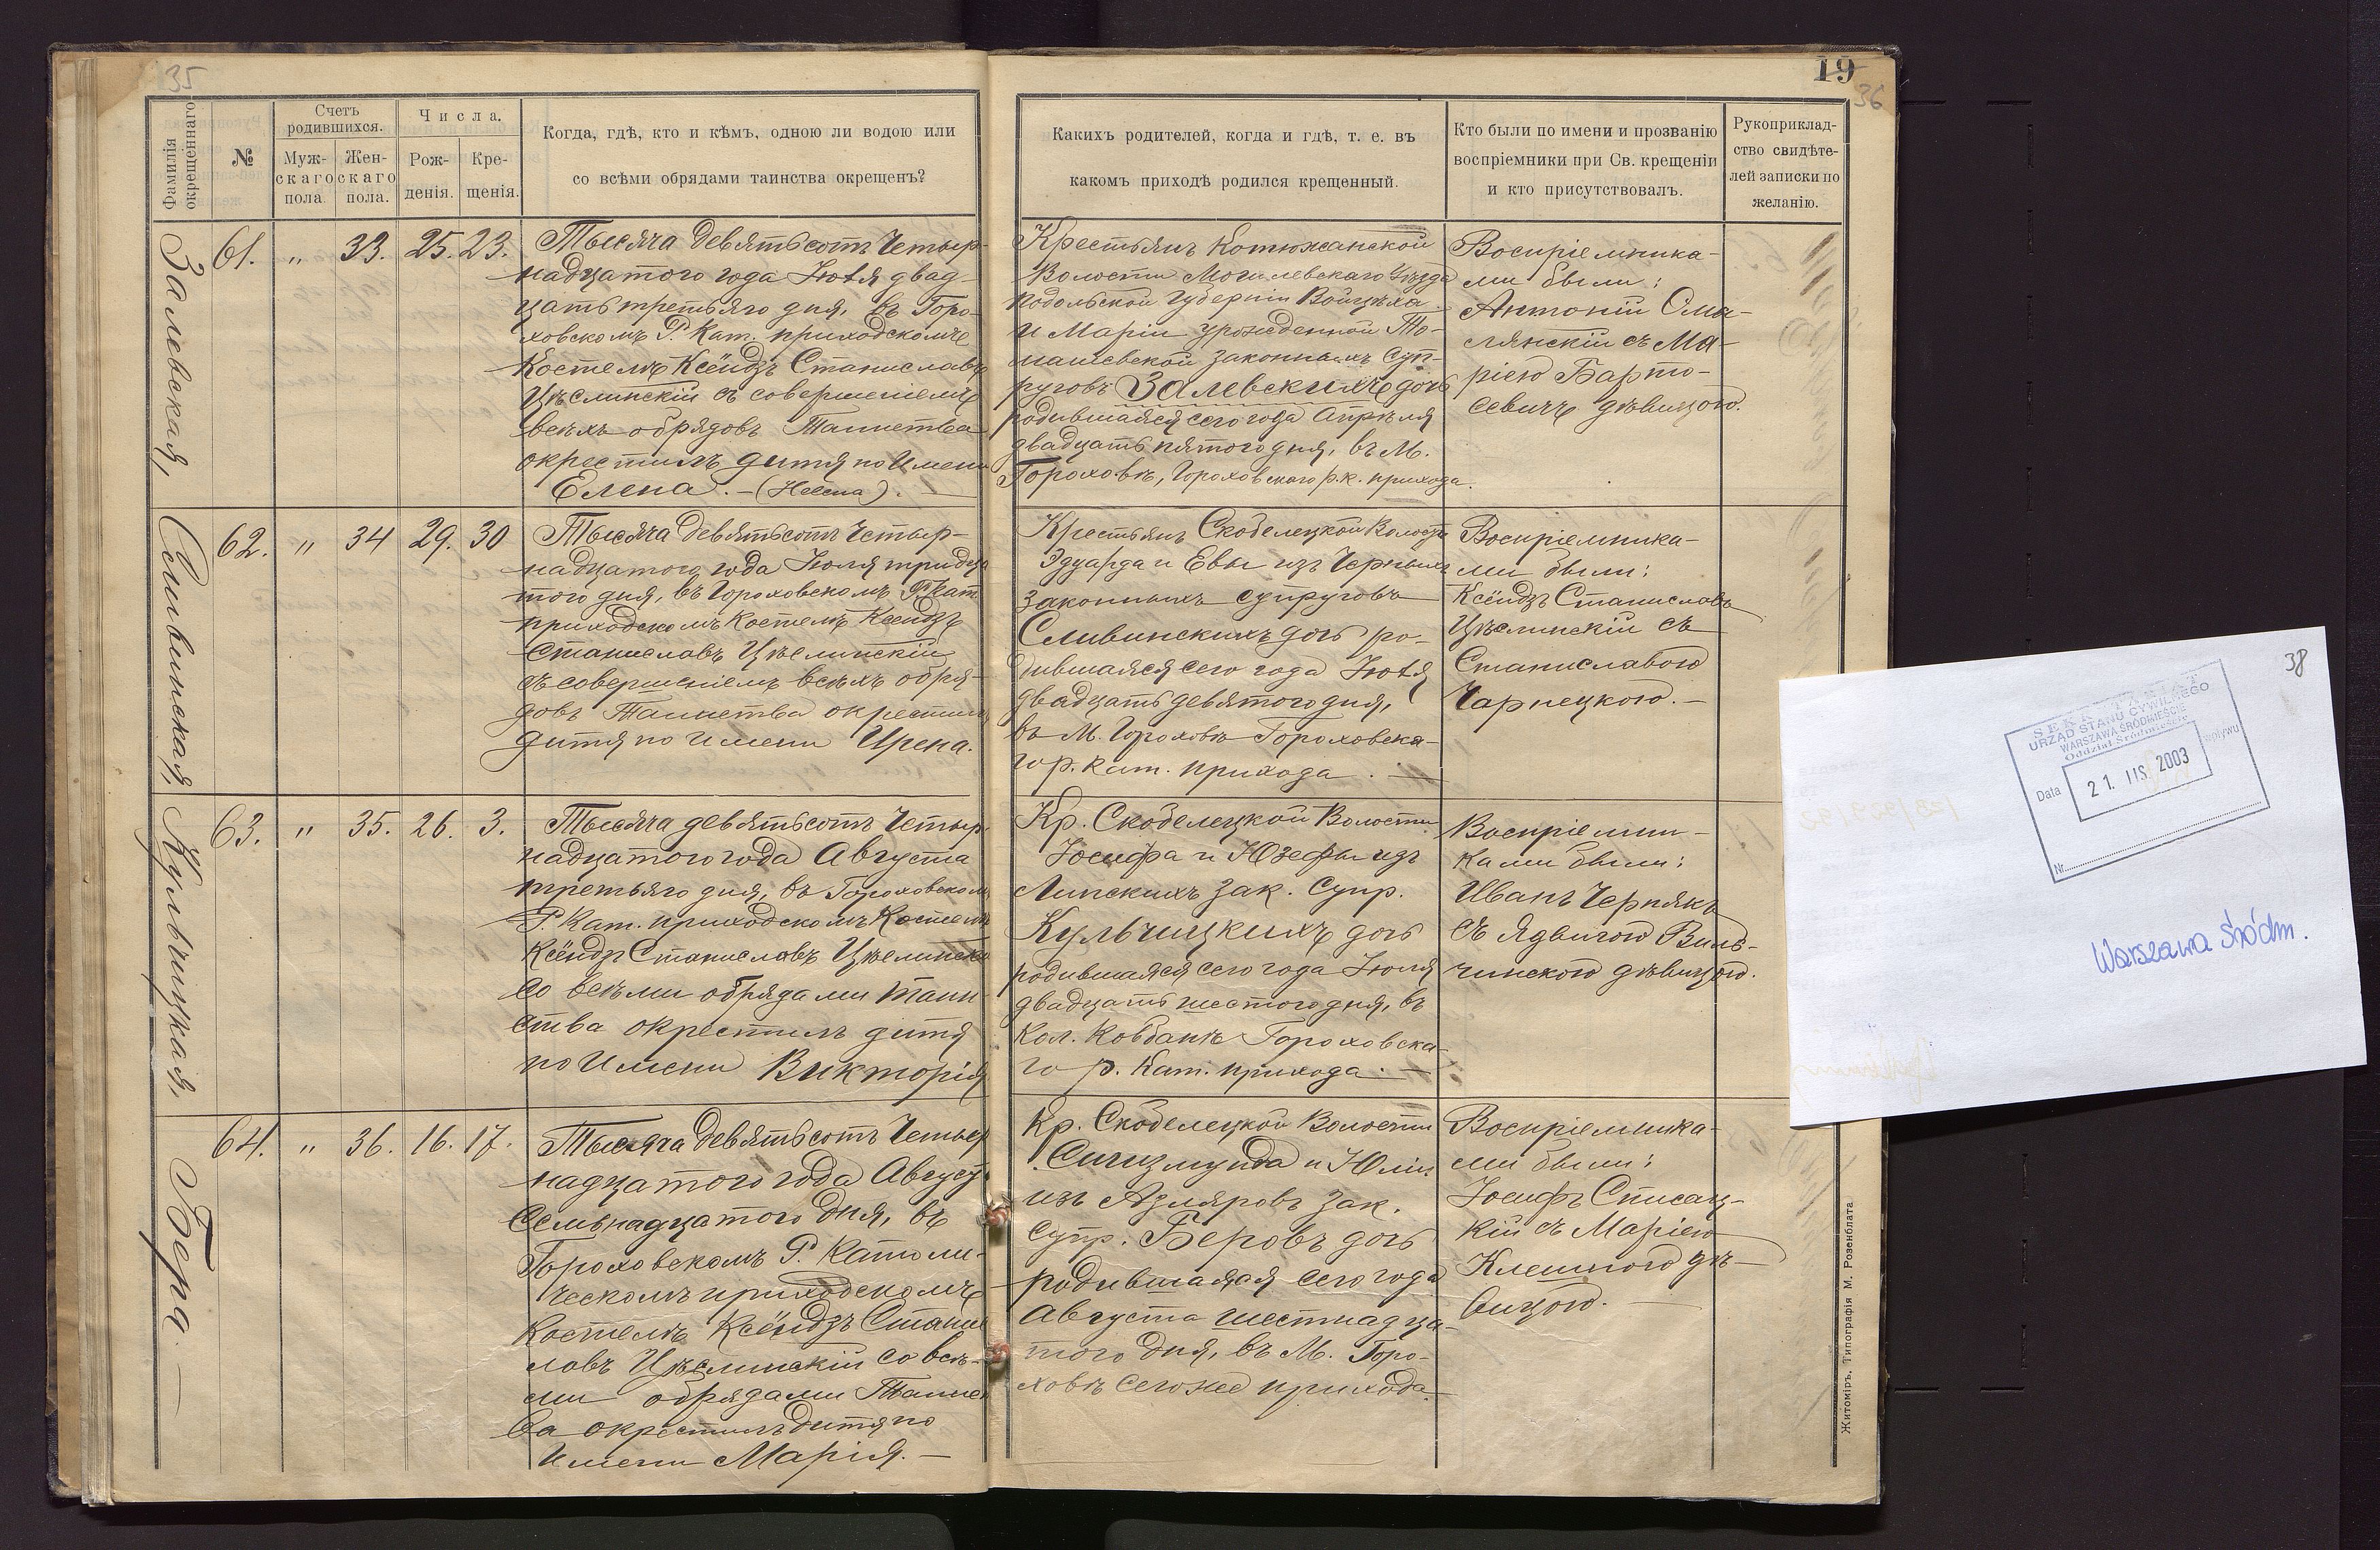 35
Фамилія
окрещеннаго
№
Счетъ
родившихся.
Муж-
скаго
пола
Жен-
скаго
пола.
Числа.
Рож-
денія.
Кре-
щенія.
Когда, гдѣ, кто и кѣмъ, одною ли водою или
со всѣми обрядами таинства окрещенъ?
Залевская,
61.
"
33.
25.
23.
Тысяча девятьсотъ четыр-
надцатого года Іюля двад-
цать третьяго дня, въ Горо-
ховскомъ Р. Кат. приходскомъ
Костелѣ Ксёндзъ Станиславъ
Цѣслинскій съ совершеніемъ
всѣхъ обрядовъ Таинства
окрестилъ дитя по имени
Елена. – (Helena). –
Сливинская,
62.
"
34
29.
30
Тысяча девятьсотъ четыр-
надцатого года Іюля тридца
того дня, въ Гороховскомъ Р. Кат
приходскомъ Костелѣ Ксёндзъ
Станиславъ Цѣслинскій
съ совершеніемъ всѣхъ обря-
довъ Таинства окрестилъ
дитя по имени Ирена.
Кульчицкая,
63.
"
35.
26.
3.
Тысяча девятьсотъ четыр
надцатого года Августа
третьяго дня, въ Гороховском
Р. Кат. приходскомъ Костелѣ
Ксёндзъ Станиславъ Цѣслинскі
со всѣми обрядами таин
ства окрестилъ дитя
по имени Викторія
Бера. –
64.
"
36.
16.
17.
Тысяча девятьсотъ четыр
надцатого года Август
семьнадцатого дня, въ
Гороховскомъ Р. Католи-
ческомъ приходскомъ
Костелѣ Ксёндзъ Стани
лавъ Цѣслинскій со всѣ-
ми обрядами Таинс
ва окрестилъ дитя по
имени Марія. –
19
36
Какихъ родителей, когда и гдѣ, т. е. въ
какомъ приходѣ родился крещенный.
Кто были по имени и прозванію
воспріемники при Св. крещеніи
и кто присутствовалъ.
Рукоприклад-
ство свидѣте-
лей записки по
желанію.
Крестьянъ Котюжанской
Волости Могилевскаго Уѣзда
Подольской Губерніи Войцѣха
и Маріи урожденной То-
машевской законныхъ суп-
руговъ Залевскихъ дочь
родившаяся сего года Апрѣля
двадцать пятого дня, въ М.
Гороховѣ, Гороховскаго р.к. прихода.
Воспріемника-
ми были:
Антоній Сма-
лянскій съ Ма-
ріею Барто-
севичъ дѣвицою.
Крестьянъ Скобелецкой Волости
Эдуарда и Евы изъ Черныхъ
законныхъ супруговъ
Сливинскихъ дочь ро-
дившаяся сего года Іюля
двадцать девятого дня,
въ М. Гороховѣ Гороховска-
го р. кат. прихода. –
Воспріемника-
ми были:
Ксёндзъ Станиславъ
Цѣслинскій съ
Станиславою
Чарнецкою. –
Кр. Скобелецкой Волости
Іосифа и Юзефы изъ
Липскихъ зак. супр.
Кульчицкихъ дочь
родившаяся сего года Іюля
двадцать шестого дня, въ
Кол. Ковбанѣ Гороховска-
го р. Кат. прихода. –
Воспріемни-
ками были:
Иванъ Чернякъ
съ Ядвигою Виль-
чинскою дѣвицою.
Кр. Скобелецкой Волости
Сигизмунда и Юліи
изъ Адляровъ зак.
супр. Беровъ дочь
родившаяся сего года
Августа шестнадца-
того дня, въ М. Горо-
ховѣ сегоже прихода
Воспріемника-
ми были:
Іосифъ Списац-
кій съ Маріею
Клешною дѣ-
вицою. –
Житоміръ, Типографія М. Розенблата
38
URZĄD STANU CYWILNEGO
WARSZAWA ŚRÓDMIEŚCIE
Data
21. LIS. 2003
wpływu
Nr
Warszawa Śródm.